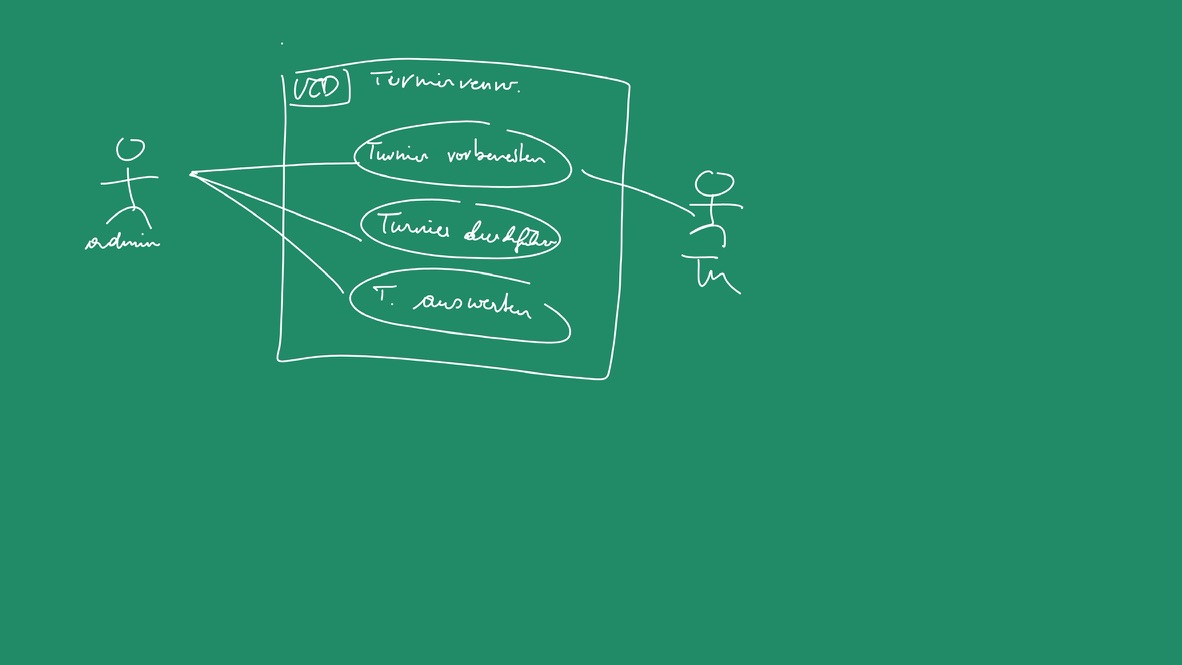 UCD Turnierverw.
Turnier vorbereiten
Turnier durchführen
T. auswerten
admin
Tn